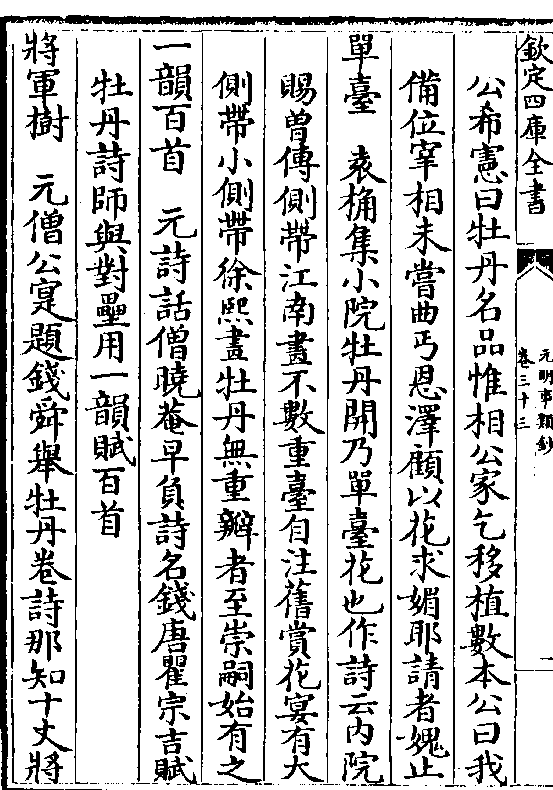 欽定四庫全書
元明事類鈔
卷三十三
公希憲曰牡丹名品惟相公家乞移植數本公曰我
備位宰相未嘗曲丐恩澤顧以花求媚耶請者媿止
單臺　袁桷集小院牡丹開乃單臺花也作詩云內院
賜曽傳側帶江南畫不數重臺自注舊賞花宴有大
側帶小側帶徐熙畫牡丹無重瓣者至崇嗣始有之
一韻百首　元詩話僧曉菴早負詩名錢唐瞿宗吉賦
牡丹詩師與對壘用一韻賦百首
將軍樹　元僧公寔題錢舜舉牡丹卷詩那知十丈將